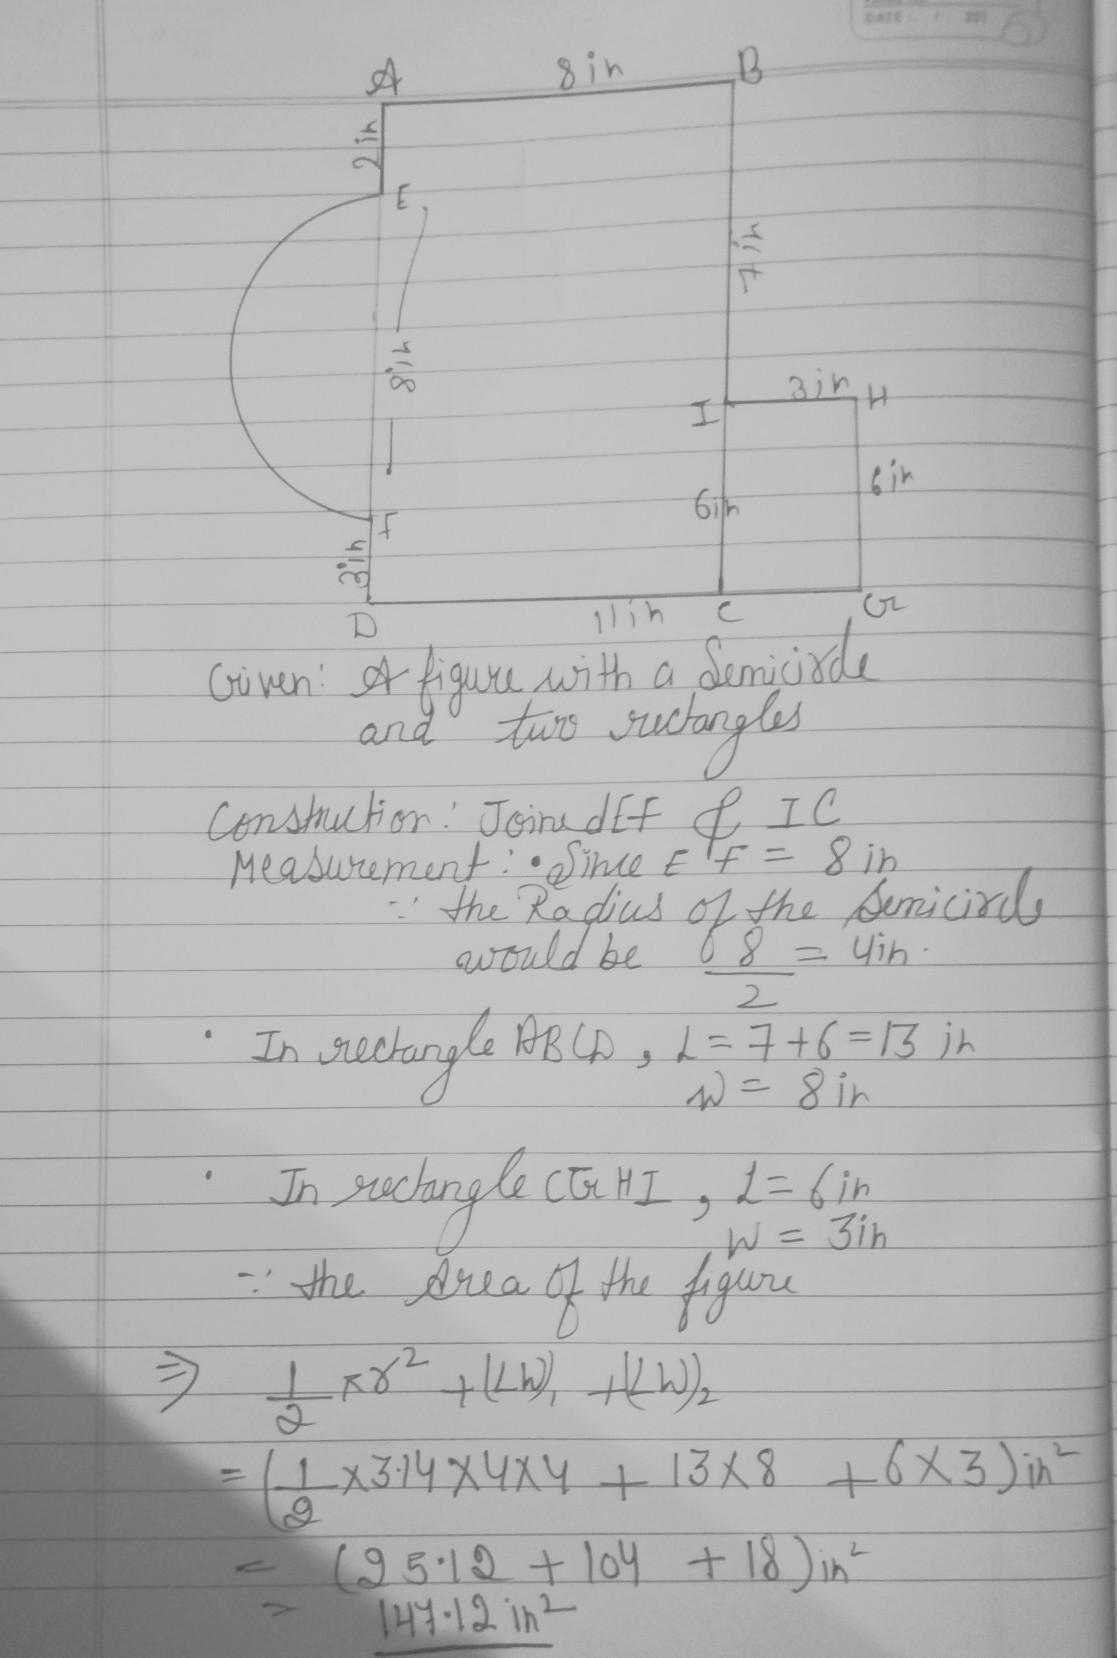 DATE: / 201
A 8 in B
2 in
E
7 in
8 in
I 3 in H
6 in 6 in
F
3 in
D 11 in C G
Given: A figure with a Semicircle
and two rectangles
Construction: Joined EF & IC
Measurement: • Since EF = 8 in
∵ the Radius of the Semicircle
would be 8/2 = 4 in.
• In rectangle ABCD, L = 7+6 = 13 in
W = 8 in
• In rectangle CGHI, L = 6 in
W = 3 in
∵ the Area of the figure
⇒ 1/2 πr² + (LW)₁ + (LW)₂
= (1/2 × 3·14 × 4 × 4 + 13 × 8 + 6 × 3) in²
= (25·12 + 104 + 18) in²
= 147·12 in²